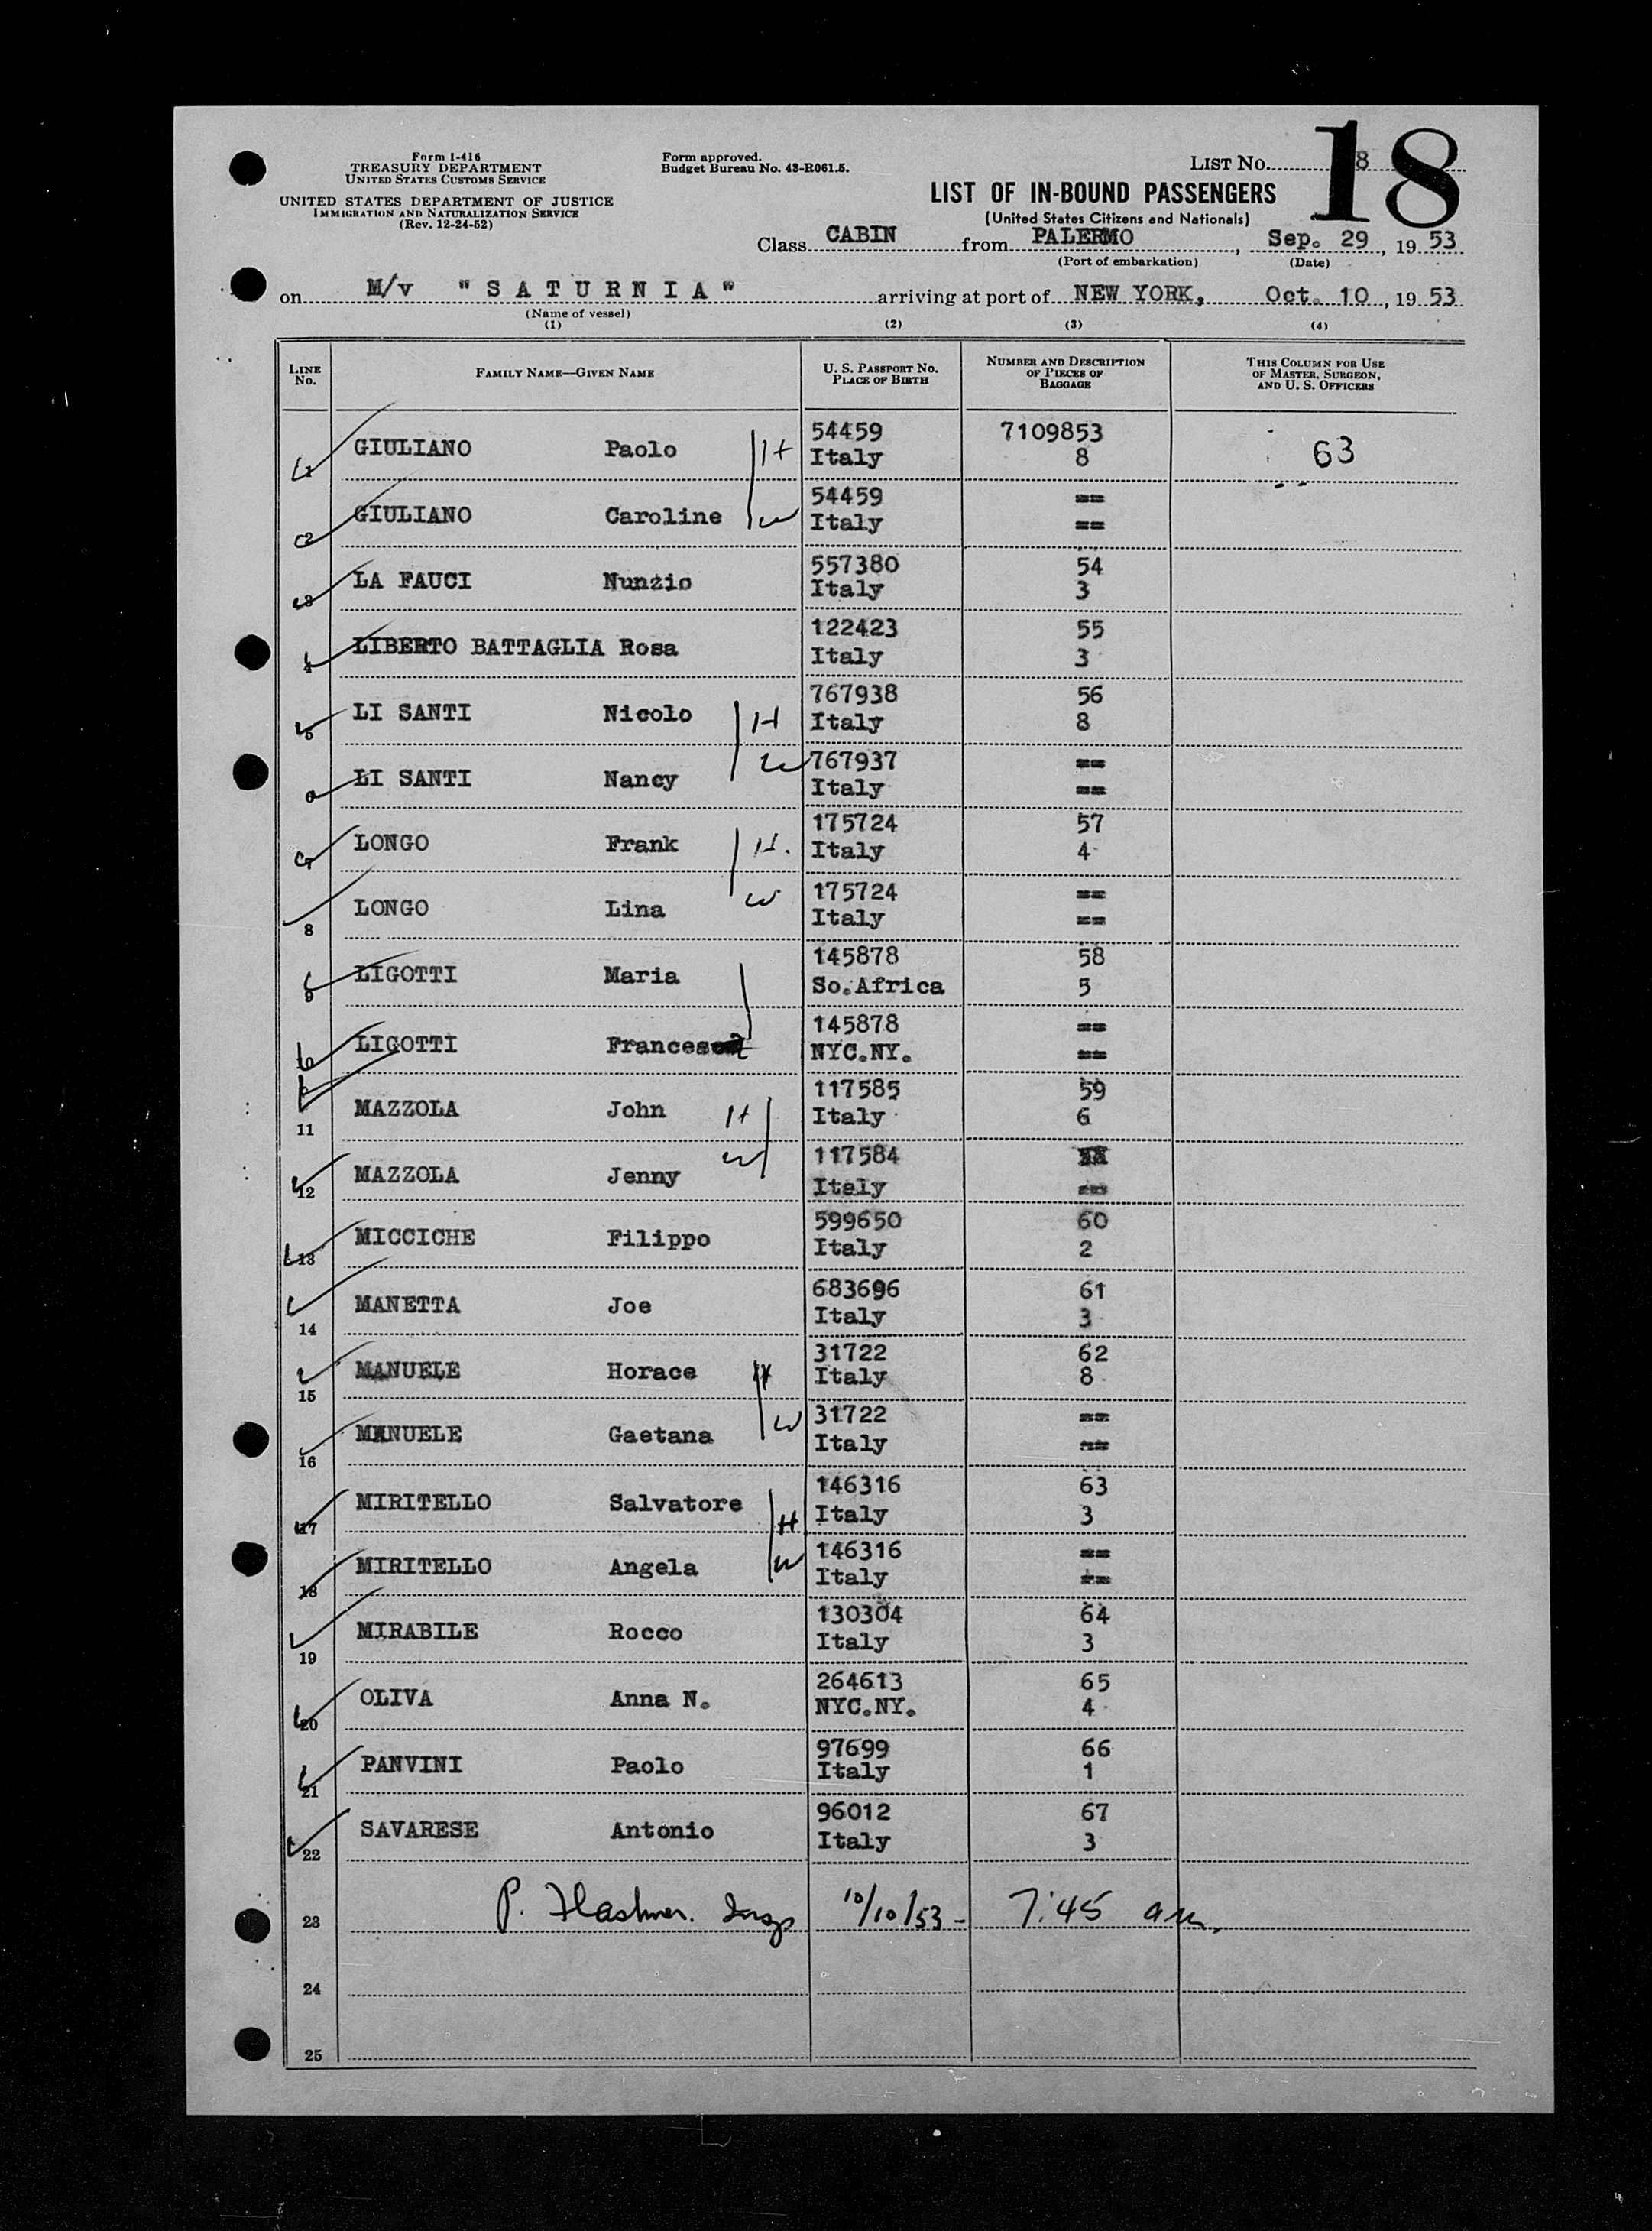 Form I-416
TREASURY DEPARTMENT
UNITED STATES CUSTOMS SERVICE
UNITED STATES DEPARTMENT OF JUSTICE
IMMIGRATION AND NATURALIZATION SERVICE
(Rev. 12-24-52)
Form approved.
Budget Bureau No. 43-R061.5.
LIST NO. 8
18
LIST OF IN-BOUND PASSENGERS
(United States Citizens and Nationals)
Class CABIN from PALERMO, Sep. 29, 19 53
(Port of embarkation) (Date)
on M/v "SATURNIA" arriving at port of NEW YORK, Oct. 10, 19 53
(Name of vessel)
(1) (2) (3) (4)
LINE No. FAMILY NAME—GIVEN NAME U. S. PASSPORT NO. PLACE OF BIRTH NUMBER AND DESCRIPTION OF PIECES OF BAGGAGE THIS COLUMN FOR USE OF MASTER, SURGEON, AND U. S. OFFICERS
1 GIULIANO Paolo H 54459 Italy 7109853 8 63
2 GIULIANO Caroline W 54459 Italy == ==
3 LA FAUCI Nunzio 557380 Italy 54 3
4 LIBERTO BATTAGLIA Rosa 122423 Italy 55 3
5 LI SANTI Nicolo H 767938 Italy 56 8
6 LI SANTI Nancy W 767937 Italy == ==
7 LONGO Frank H. 175724 Italy 57 4
8 LONGO Lina W 175724 Italy == ==
9 LIGOTTI Maria 145878 So.Africa 58 5
10 LIGOTTI 145878 NYC.NY. == ==
11 MAZZOLA John H 117585 Italy 59 6
12 MAZZOLA Jenny W 117584 Italy ==
13 MICCICHE Filippo 599650 Italy 60 2
14 MANETTA Joe 683696 Italy 61 3
15 MANUELE Horace H 31722 Italy 62 8
16 MANUELE Gaetana W 31722 Italy == ==
17 MIRITELLO Salvatore H 146316 Italy 63 3
18 MIRITELLO Angela W 146316 Italy == ==
19 MIRABILE Rocco 130304 Italy 64 3
20 OLIVA Anna N. 264613 NYC.NY. 65 4
21 PANVINI Paolo 97699 Italy 66 1
22 SAVARESE Antonio 96012 Italy 67 3
23 P. 10/10/53 - 7:45 am.
24
25